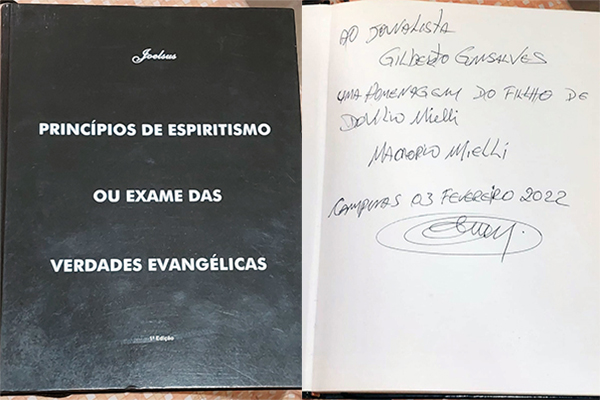 Joelsus
PRINCÍPIOS DE ESPIRITISMO
OU EXAME DAS
VERDADES EVANGÉLICAS
1ª Edição
AO JORNALISTA
GILBERTO GONSALVES
UMA HOMENAGEM DO FILHO DE
Mielli
MIELLI
CAMPINAS 03 FEVEREIRO 2022